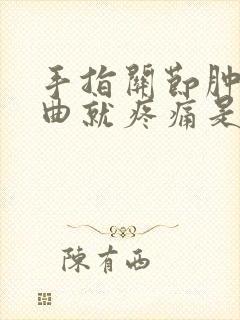 手指關節肿
曲就疼痛是
陳有西